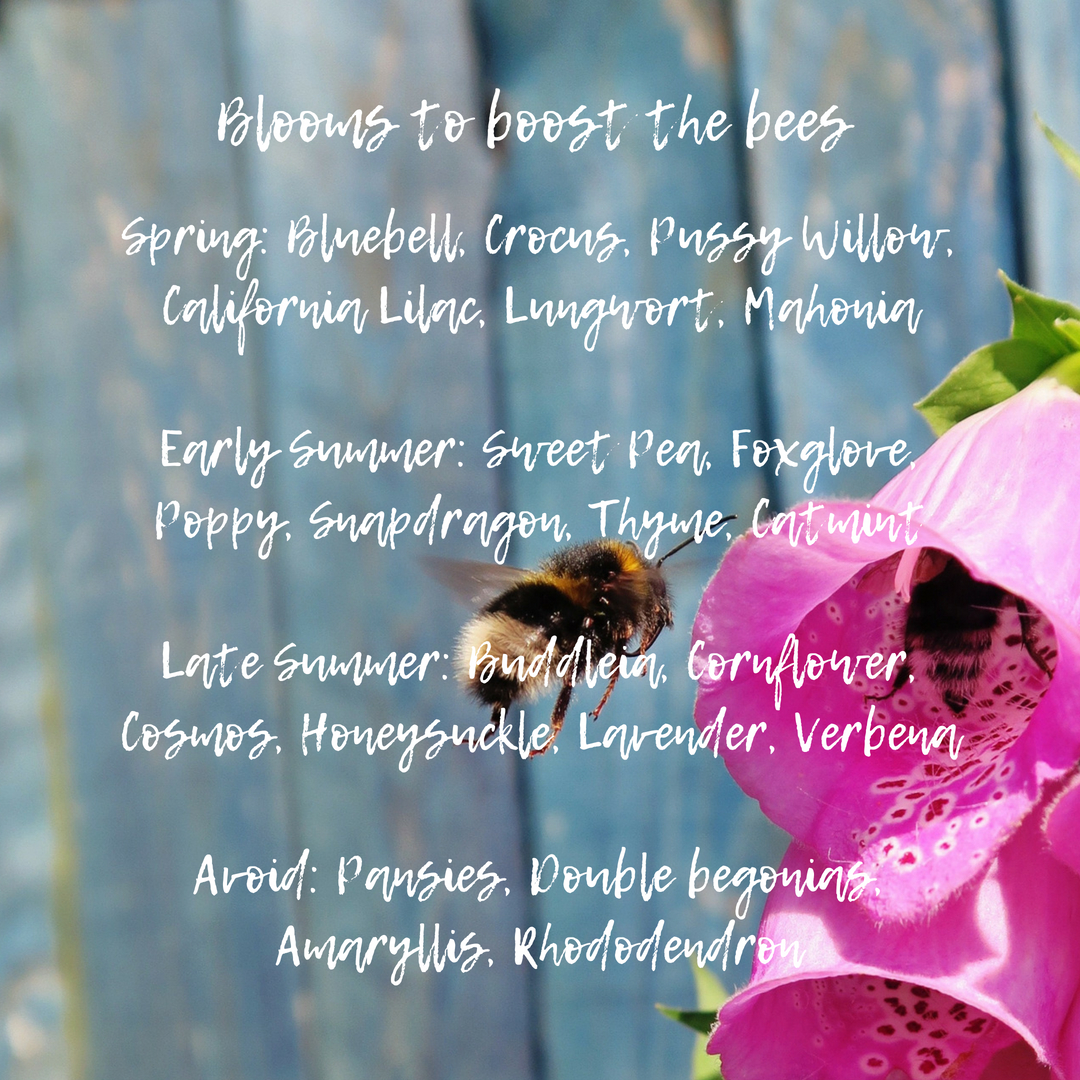 Blooms to boost the bees
Spring: Bluebell, Crocus, Pussy Willow,
California Lilac, Lungwort, Mahonia
Early Summer: Sweet Pea, Foxglove,
Poppy, Snapdragon, Thyme, Catmint
Late Summer: Buddleia, Cornflower,
Cosmos, Honeysuckle, Lavender, Verbena
Avoid: Pansies, Double begonias,
Amaryllis, Rhododendron